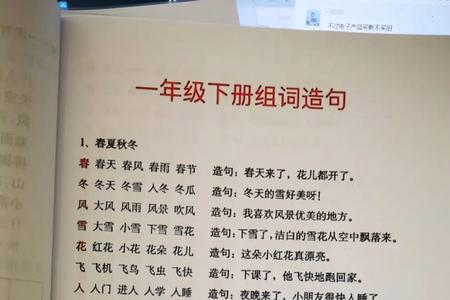 不过电子产品买新不买旧
一年级下册组词造句
1、春夏秋冬
春 春天 春风 春雨 春节 造句：春天来了，花儿都开了。
冬 冬天 冬雪 入冬 冬瓜 造句：冬天的雪好美呀！
风 大风 风雨 风景 吹风 造句：我喜欢风景优美的地方。
雪 大雪 小雪 下雪 雪花 造句：下雪了，洁白的雪花从空中飘落来。
花 红花 小花 花朵 花儿 造句：这朵小红花真漂亮。
飞 飞机 飞鸟 飞虫 飞快 造句：下课了，他飞快地跑回家。
入 入门 进入 入学 入睡 造句：夜晚来了，小朋友很快入睡了